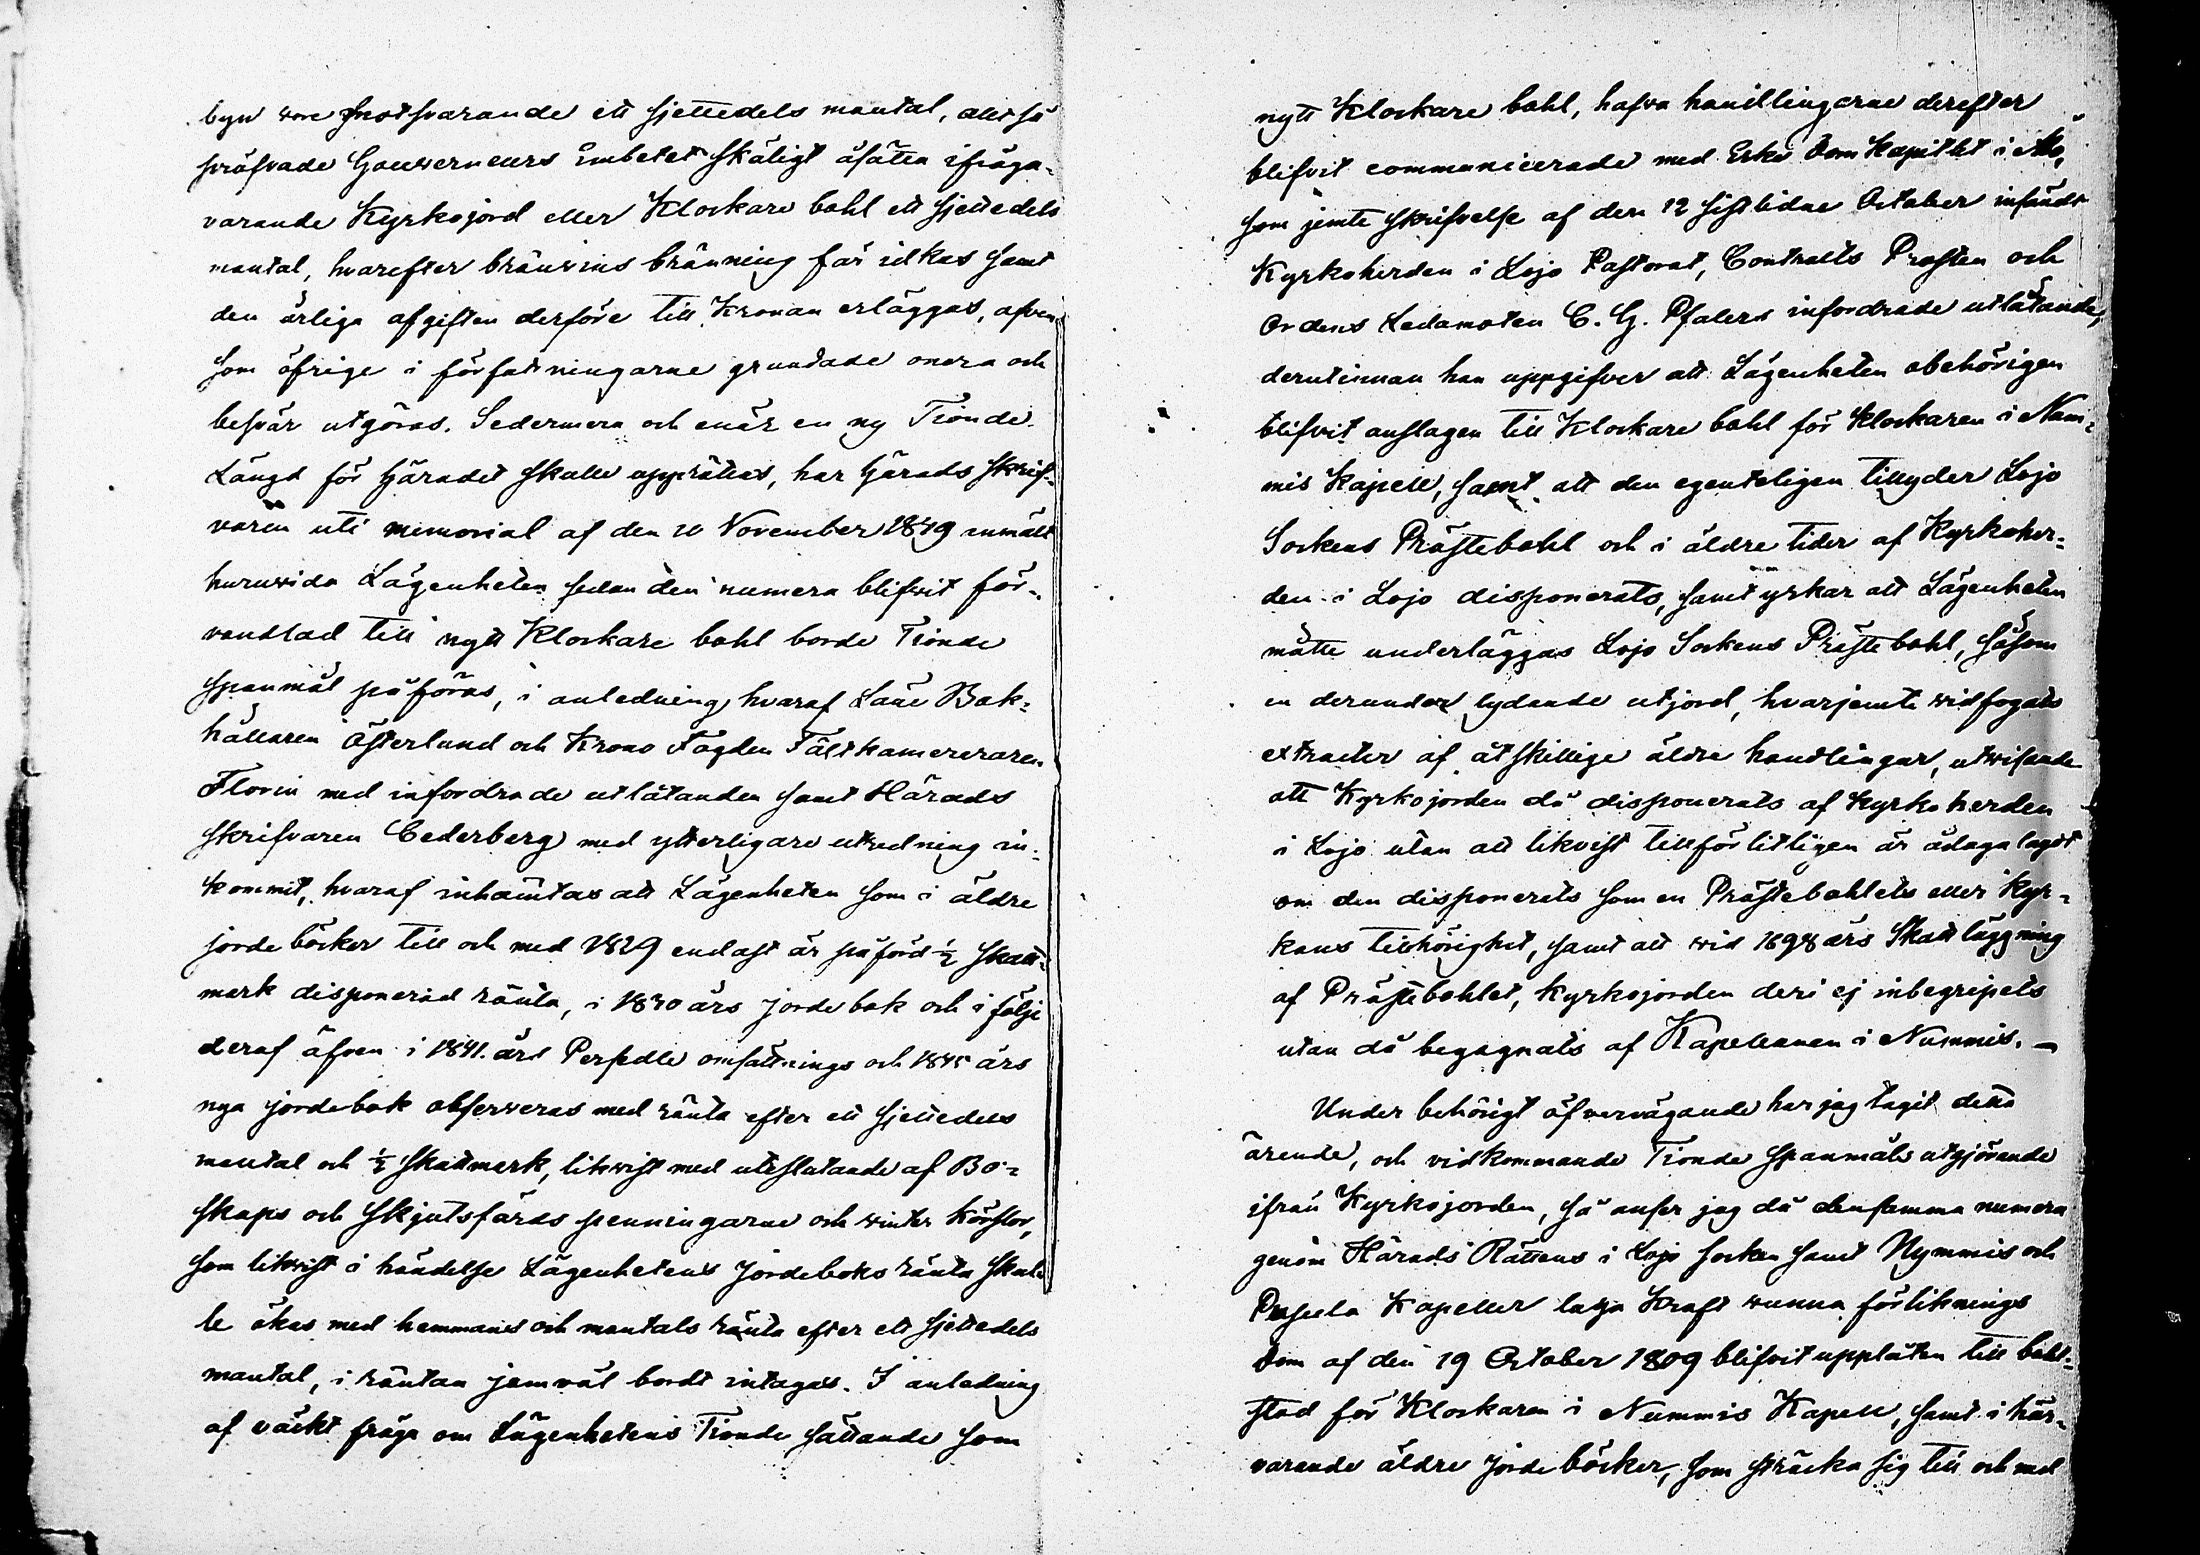 byn vore motsvarande ett sjettedels mantal, altså
pröfvade Gouverneurs Embetet skäligt åsätta ifråga-
varande Kyrkojord eller Klockare bohl ett sjettedels
mantal, hvarefter bränvins bränning får idkas samt
den årliga afgiften derföre till Kronan erläggas, äfven
som öfrige i författningarne grundade onera och
besvär utgöras. Sedermera och enär en ny Tionde
Längd för Häradet skulle upprättas, har Härads Skrif-
varen uti memorial af den 10 November 1849 anmält
huruvida Lägenheten sedan den numera blifvit för-
vandlad till nytt Klockare bohl borde Tionde
spanmål påföras, i anledning hvaraf Läne Bok-
hållaren Österlund och Krono Fogden Fältkamereraren
Florin med infordrade utlåtanden samt Härads
skrifvaren Cederberg med ytterligare utredning in-
kommit, hvaraf inhämtas att Lägenheten som i äldre
jorde böcker till och med 1829 endast är påförd ½ skatt-
mark disponerad ränta, i 1830 års jorde bok och i följe
deraf äfven i 1841. års Persedle omsättnings och 1845 års
nya jordebok observeras med ränta efter ett sjettedels
mantal och ½ skattmark, likvist med uteslutande af Bo-
skaps och Skjutsfärds penningarne och vinter körslor,
som likvist i händelse Lägenhetens jordeboks ränta skul-
le ökas med hemmans och mantals ränta efter ett sjettedels
mantal, i räntan jemväl bordt intagas. I anledning
af väckt fråga om Lägenhetens Tionde sättande som
nytt Klockare bohl, hafva handlingarne derefter
blifvit communicerade med Erke Dom Kapitlet i Åbo,
som jemte skrifvelse af den 12 sistlidne October insändt
Kyrkoherden i Lojo Pastorat, Contracts Prosten och
Ordens Ledamoten C. G. Pfalers infordrade utlåtande,
derutinnan han uppgifver att Lägenheten obehörigen
blifvit anslagen till Klockare bohl för Klockaren i Num-
mis Kapell, samt att den egenteligen tillyder Lojo
Sockens Prästebohl och i äldre tider af Kyrkoher-
den i Lojo disponerats, samt yrkar att Lägenheten
måtte underläggas Lojo Sockens Präste bohl, såsom
en derunder lydande utjord, hvarjemte vidfogats
extracter af åtskillige äldre handlingar, utvisande
att Kyrkojorden då disponerats af Kyrkoherden
i Lojo utan att likvist tillförlitligen är ådagalagdt
om den disponerats som en Prästebohlets eller Kyr-
kans tillhörighet, samt att vid 1698 års Skattläggning
af Prästebohlet, Kyrkojorden deri ej inbegripets
utan då begagnats af Kapellanen i Nummis. —
Under behörigt öfvervägande har jag tagit detta
ärende, och vidkommande Tionde spanmåls utgjörande
ifrån Kyrkojorden, så anser jag då densamma numera
genom Härads Rättens i Lojo socken samt Nymmis och
Pusula Kapeller laga Kraft vunna förliknings
Dom af den 19 October 1809 blifvit upplåten till bohl-
stad för Klockaren i Nummis Kapell, samt i här-
varande äldre jorde böcker, som sträcka sig till och med